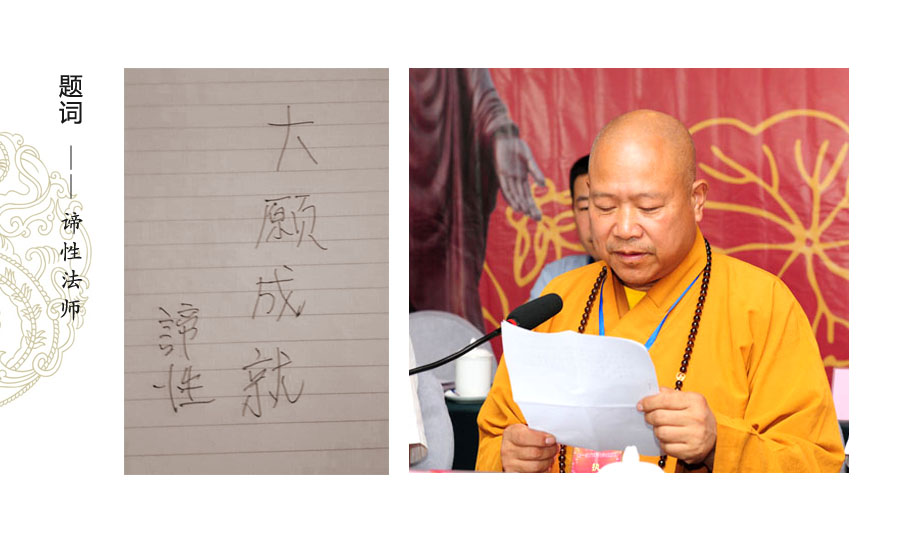 题词——谛性法师
大願成就
諦性
执